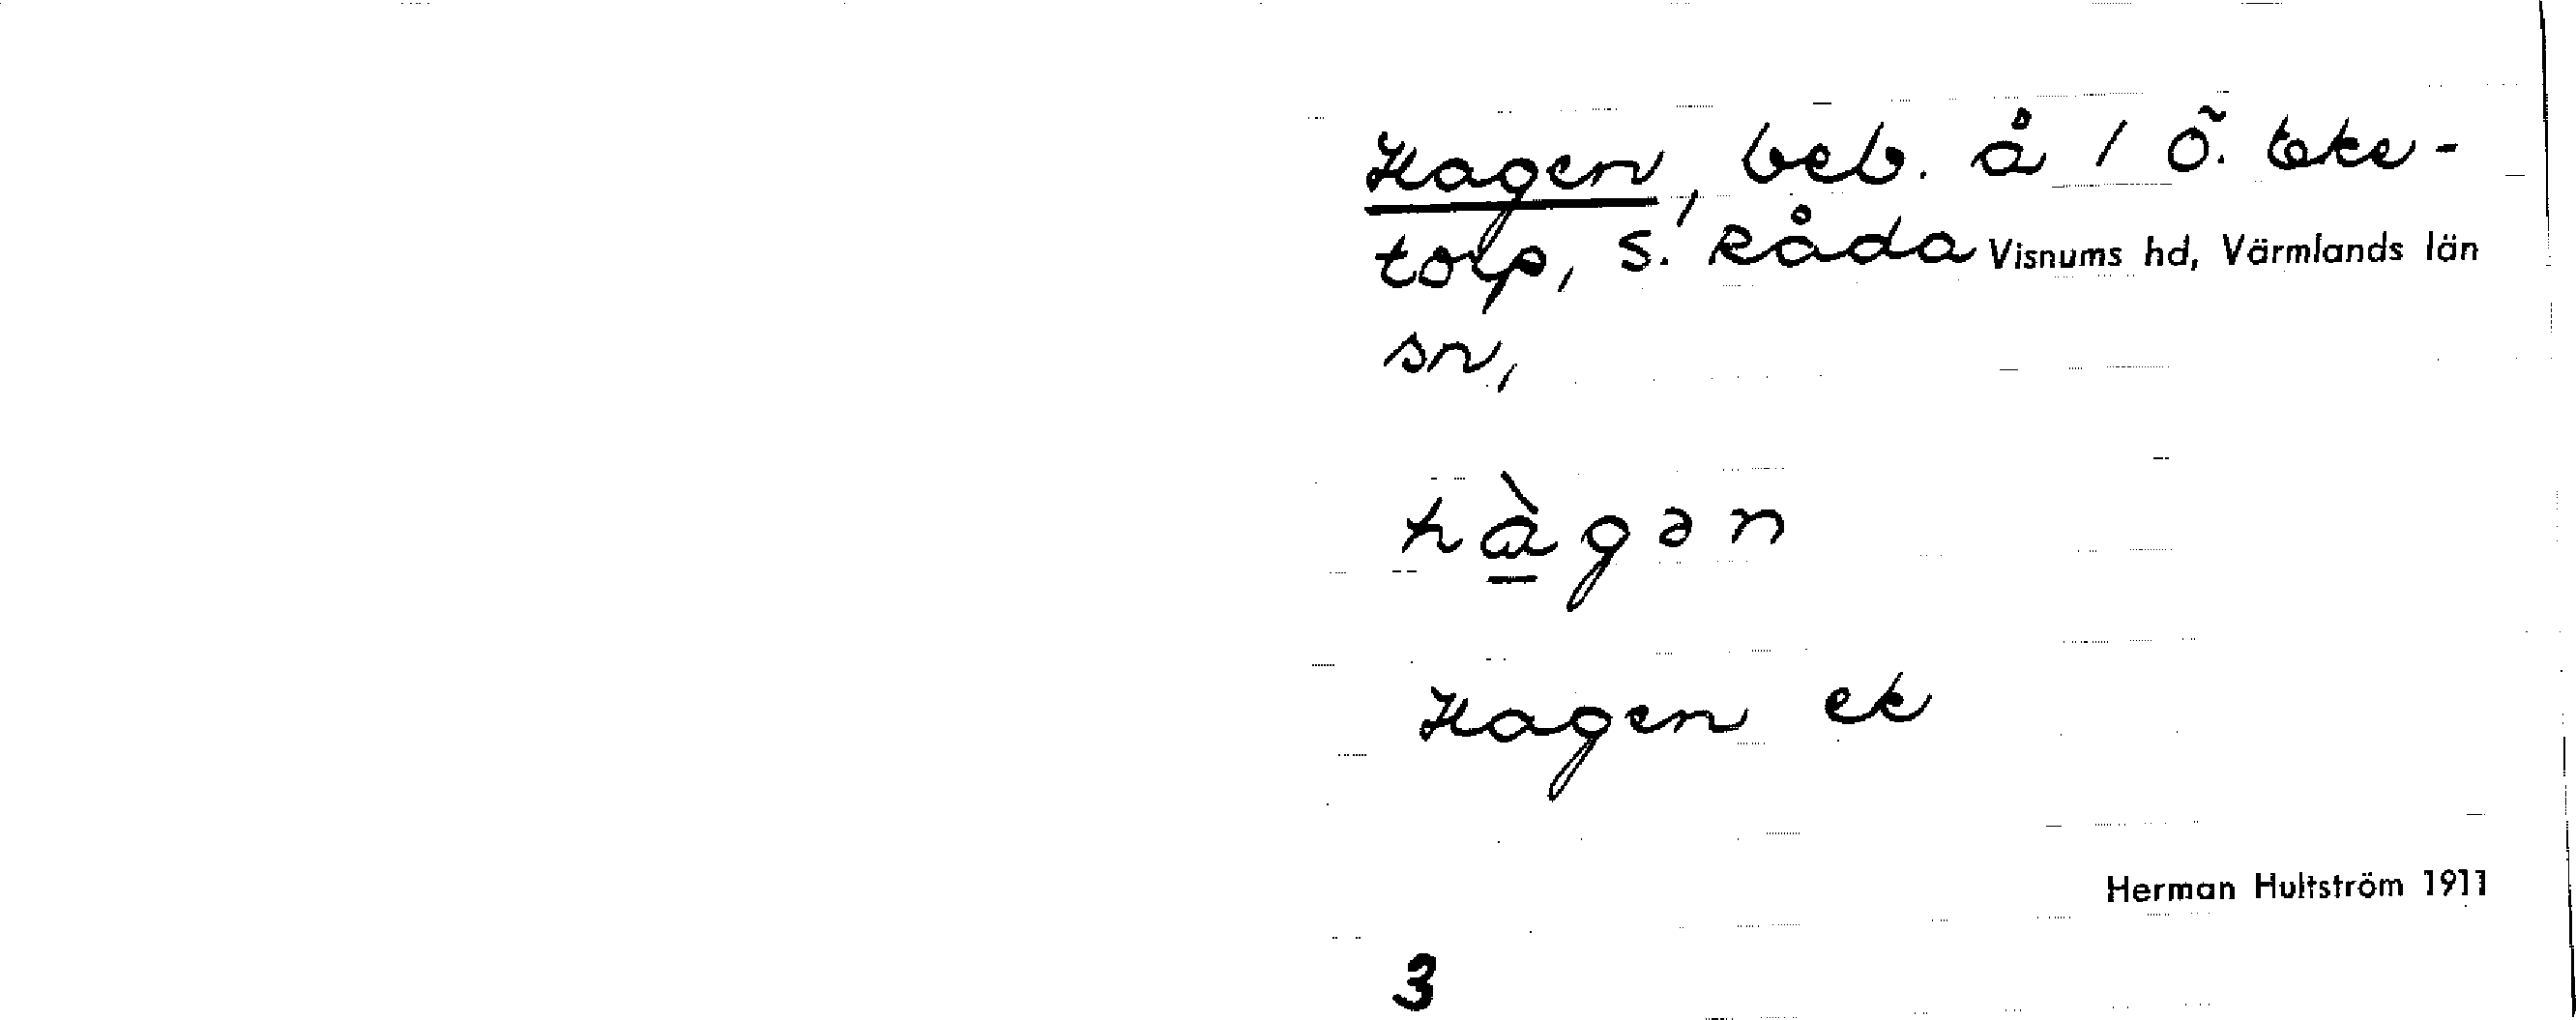 Hagen, beb. å 1 Ö. Eke-
torp, S. Råda Visnums hd, Värmlands län
sn,
hàgən
Hagen ek
Herman Hultström 1911
3